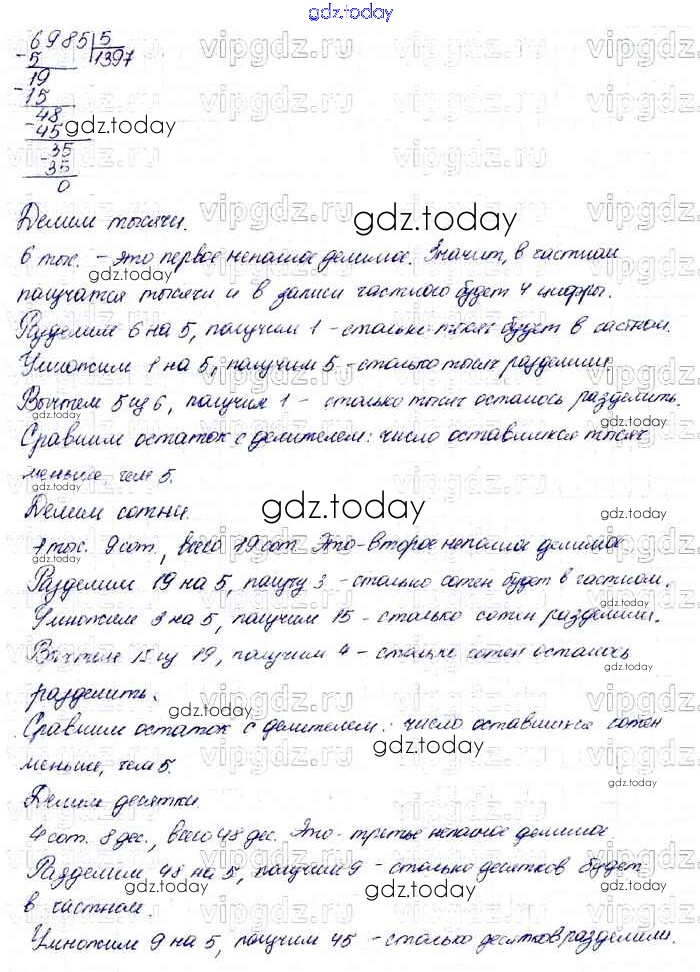 gdz.today
6985 5
5 1397
19
15
48
45
35
35
0
Делим тысячи.
6 тыс. - это первое неполное делимое. Значит, в частном
получатся тысячи и в записи частного будет 4 цифры.
Разделим 6 на 5, получим 1 - столько тысяч будет в частном.
Умножим 1 на 5, получим 5 - столько тысяч разделили.
Вычтем 5 из 6, получим 1 - столько тысяч осталось разделить.
Сравним остаток с делителем: число оставшихся тысяч
меньше, чем 5.
Делим сотни.
1 тыс. 9 сот., всего 19 сот. Это - второе неполное делимое
Разделим 19 на 5, получу 3 - столько сотен будет в частном.
Умножим 3 на 5, получим 15 - столько сотен разделили.
Вычтем 15 из 19, получим 4 - столько сотен осталось
разделить.
Сравним остаток с делителем: число оставшихся сотен
меньше, чем 5.
Делим десятки.
4 сот. 8 дес., всего 48 дес. Это - третье неполное делимое
Разделим 48 на 5, получим 9 - столько десятков будет
в частном.
Умножим 9 на 5, получим 45 - столько десятков разделили.